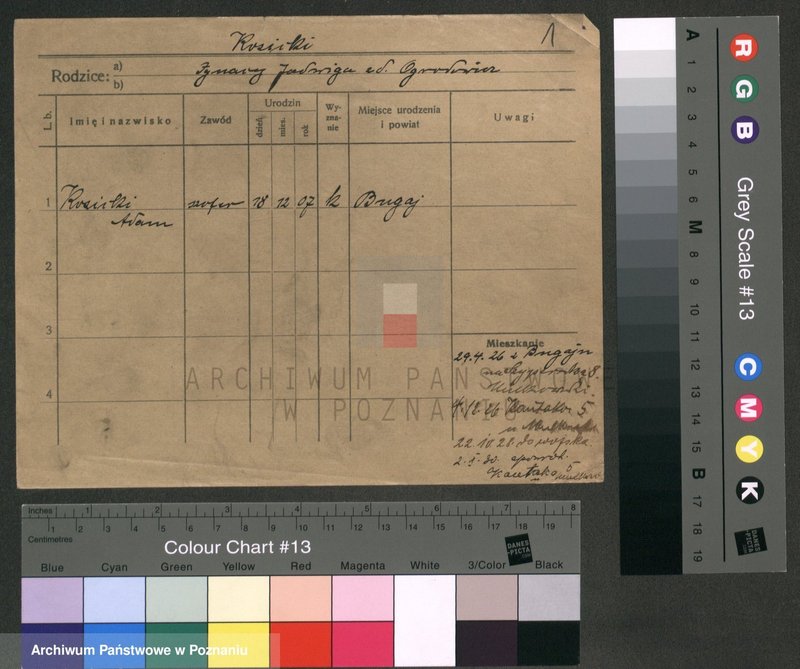 Kosicki
1
Rodzice: a) b) Ignacy Jadwiga
L. b.
Imię i nazwisko
Zawód
Urodzin
dzień
mies.
rok
Wy-
zna-
nie
Miejsce urodzenia
i powiat
Uwagi
1 Kosicki szofer 18 12 07 k Bugaj
Adam
2
3
4
Mieszkanie
29.4.26 z Bugaju
8
4.12.26 5
22.10.28 do wojska
2.5.30
5
ARCHIWUM PAŃSTWOWE
W POZNANIU
Inches 1 2 3 4 5 6 7 8
Centimetres 1 2 3 4 5 6 7 8 9 10 11 12 13 14 15 16 17 18 19
Colour Chart #13
DANES-PICTA.COM
Blue Cyan Green Yellow Red Magenta White 3/Color Black
Archiwum Państwowe w Poznaniu
A 1 2 3 4 5 6 M 8 9 10 11 12 13 14 15 B 17 18 19
R G B
Grey Scale #13
C M Y K
DANES-PICTA.COM